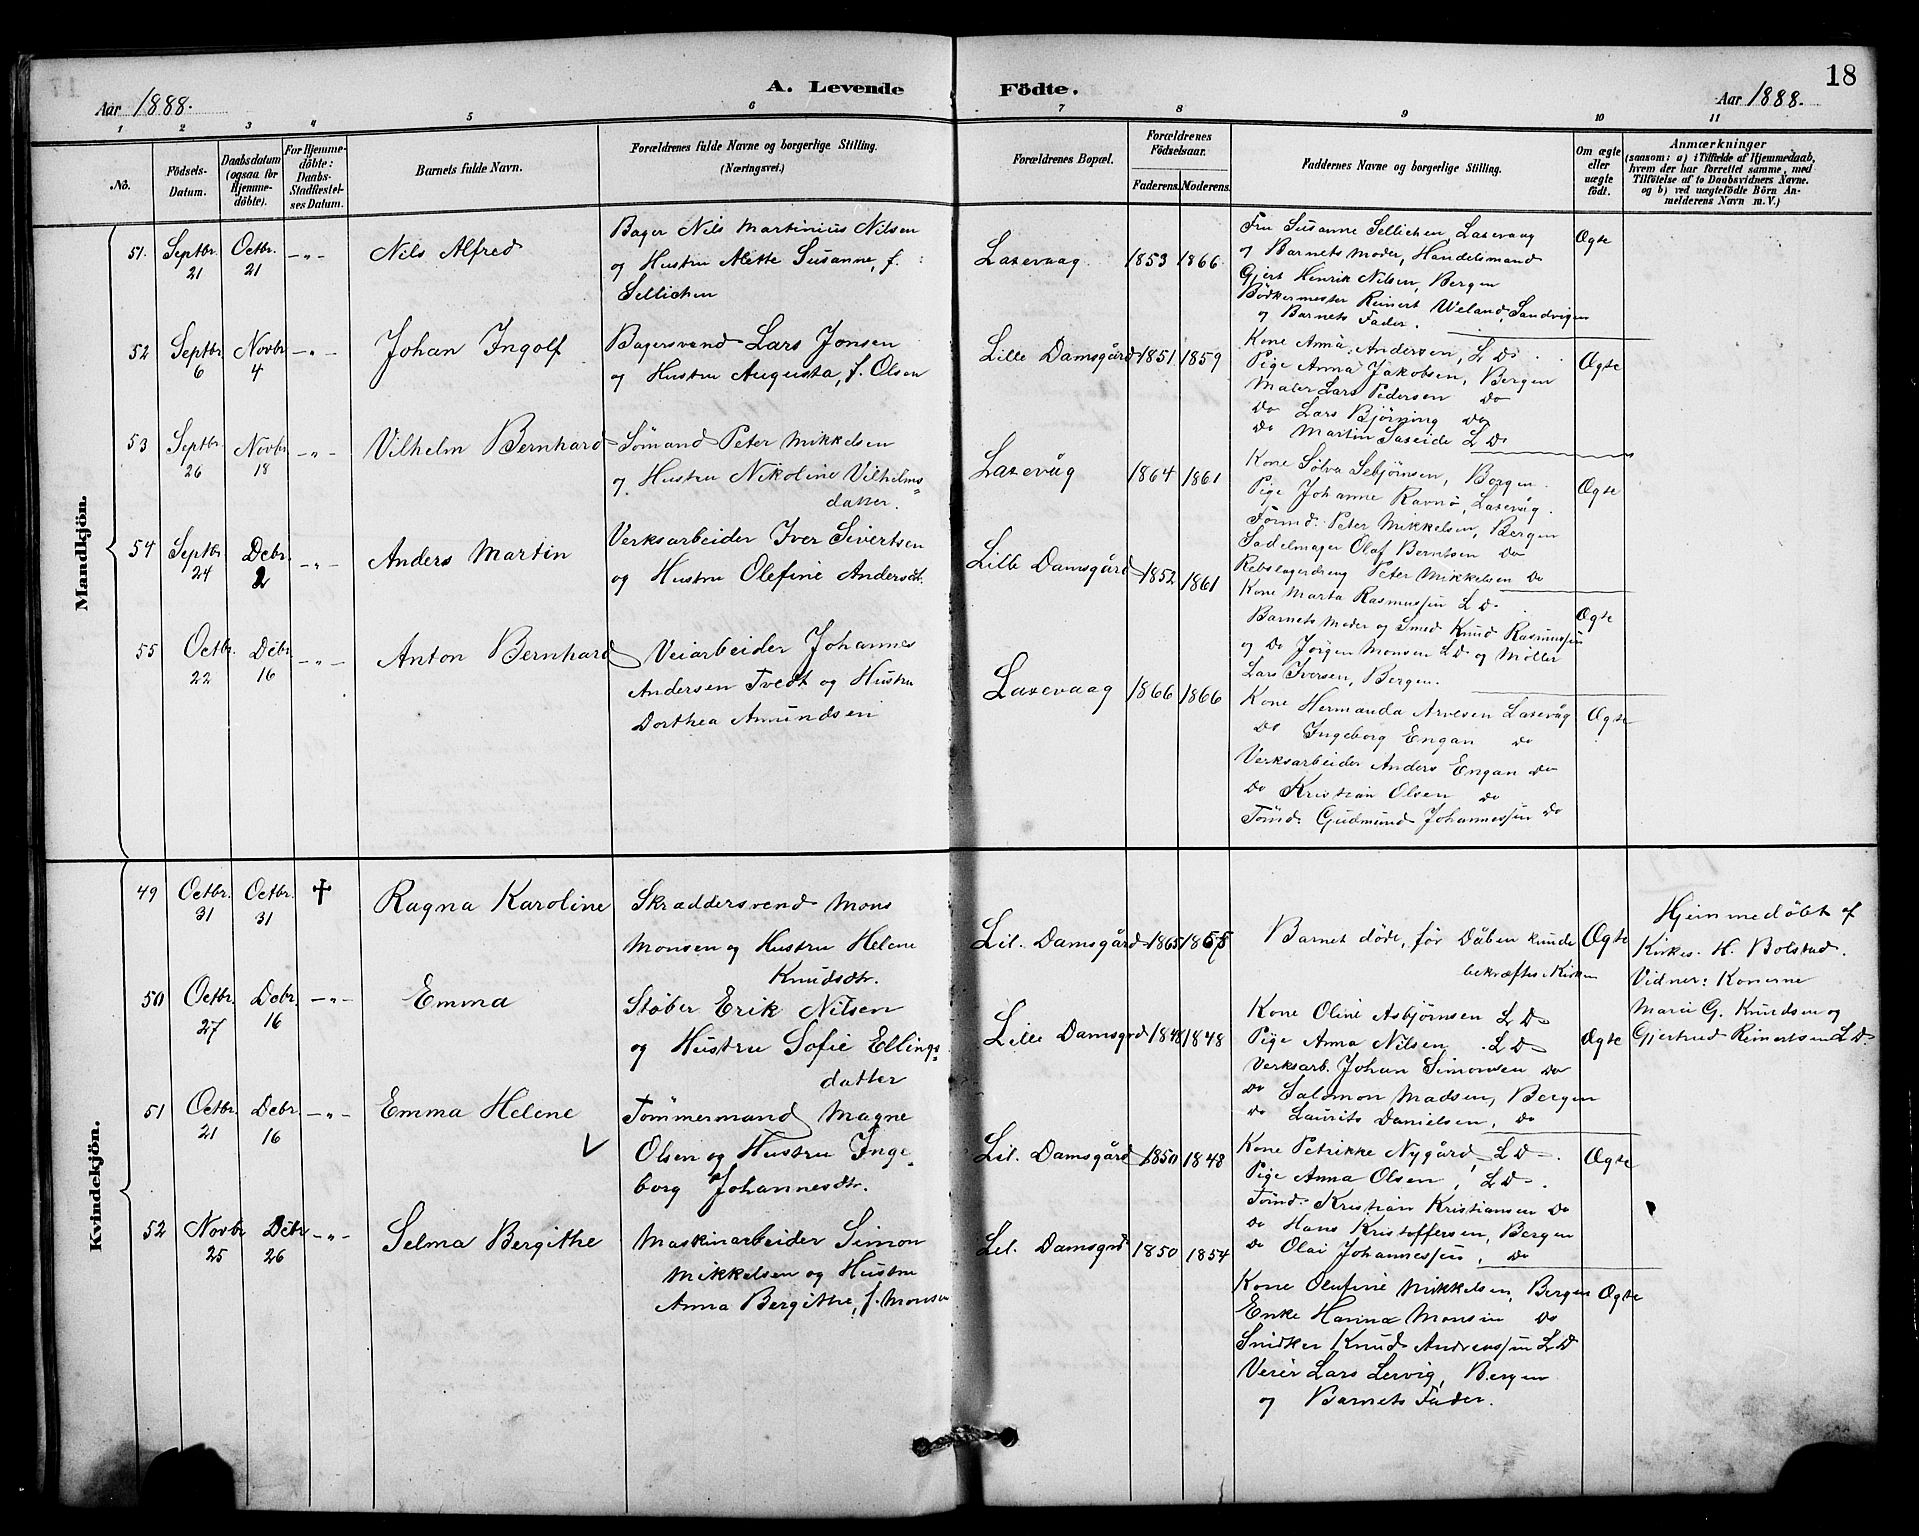 18
A. Levende Födte.
Aar 1888.
Aar 1888.
1 2 3 4 5 6 7 8 9 10 11
No.
Födsels-
Datum.
Daabsdatum
(ogsaa for
Hjemme-
döbte).
For Hjemme-
döbte:
Daabs-
Stadfæstel-
ses Datum.
Barnets fulde Navn.
Forældrenes fulde Navne og borgerlige Stilling.
(Næringsvei.)
Forældrenes Bopæl.
Forældrenes
Födselsaar.
Faderens. Moderens.
Faddernes Navne og borgerlige Stilling.
Om ægte
eller
uægte
födt.
Anmærkninger
(saasom: a) i Tilfælde af Hjemmedaab,
hvem der har forrettet samme, med
Tilföielse af to Daabsvidners Navne.
og b) ved uægtefödte Börn An-
melderens Navn m. V.)
Mandkjön.
51. Septbr. 21 Octbr. 21 -„- Nils Alfred
Bager Nils Martinius Nilsen
og Hustru Alette Susanne, f.
Sellichen
Laxevaag 1853 1866
Fru Susanne Sellichen Laxevaag
og Barnets Moder, Handelsmand
Gjert Henrik Nilsen, Bergen
Bödkermester Reinert Weland, Sandvigen
og Barnets Fader.
Ægte
52 Septbr 6 Novbr 4 -„- Johan Ingolf
Bagersvend Lars Jonsen
og Hustru Augusta, f. Olsen
Lille Damsgård 1851 1859
Kone Anna Andersen, L D.
Pige Anna Jakobsen, Bergen
Maler Lars Pedersen do
Do Lars Bjórning do
Do Martin Saxeide L D
Ægte
53 Septbr 26 Novbr 18 -„- Vilhelm Bernhard
Sømand Peter Mikkelsen
og Hustru Nikoline Vilhelms-
datter.
Laxevåg 1864 1861
Kone Sølva Sebjørnsen, Bergen.
Pige Johanne Ravnø, Laxevåg.
Tømd. Peter Mikkelsen, Bergen
Sadelmager Olaf Berntsen do
Rebslagerdreng Peter Mikkelsen do
Ægte
54 Septbr 24 Debr. 2 -„- Anders Martin
Verksarbeider Iver Sivertsen
og Hustru Olefine Andersdt.
Lille Damsgård 1852 1861
Kone Marta Rasmussen L D.
Barnets Moder og Smed Knud Rasmussen
og Do Jörgen Monsen L D og Møller
Lars Iversen, Bergen.
Ægte
55 Octbr. 22 Debr. 16 -„- Anton Bernhard
Veiarbeider Johannes
Andersen Tvedt og Hustru
Dorthea Amundsen
Laxevaag 1866 1866
Kone Hermanda Arvesen Laxevåg
Do Ingeborg Engan do
Verksarbeider Anders Engan do
Do Kristian Olsen do
Tömd. Gudmund Johannessen do
Ægte
Kvindekjön.
49 Octbr. 31 Octbr. 31 † Ragna Karoline
Skræddersvend Mons
Monsen og Hustru Helene
Knudsdtr.
Lil. Damsgård 1865
Barnet døde, før Dåben kunde
bekræftes i Kirken
Ægte
Hjemmedøbt af
Kirkes. H. Bolstad.
Vidner: Konerne
Mari G. Knudsen og
Gjertrud Reinertsen L D.
50 Octbr. 27 Debr. 16 -„- Emma
Støber Erik Nilsen
og Hustru Sofie Ellings-
datter
Lille Damsgrd 1848 1848
Kone Oline Asbjørnsen L D
Pige Anna Nilsen L D
Verksarb. Johan Simonsen do
Do Salomon Madsen, Bergen
Do Laurits Danielsen, do
Ægte
51 Octbr. 21 Debr. 16 -„- Emma Helene
Tømmermand Magne
Olsen og Hustru Inge-
borg Johannesdtr.
Lil. Damsgård 1850 1848
Kone Petrikke Nygård, L D.
Pige Anna Olsen, L D.
Tømd. Kristian Kristiansen Do
Do Hans Kristoffersen, Bergen
Do Olai Johannessen, do
Ægte
52 Novbr 25 Debr 26 -„- Selma Bergithe
Maskinarbeider Simon
Mikkelsen og Hustru
Anna Bergithe, f. Monsen
Lil. Damsgrd 1850 1854
Kone Olufine Mikkelsen, Bergen
Enke Hanna Monsen do
Snidker Knud Andreassen L D
Veier Lars Lervig, Bergen
og Barnets Fader.
Ægte